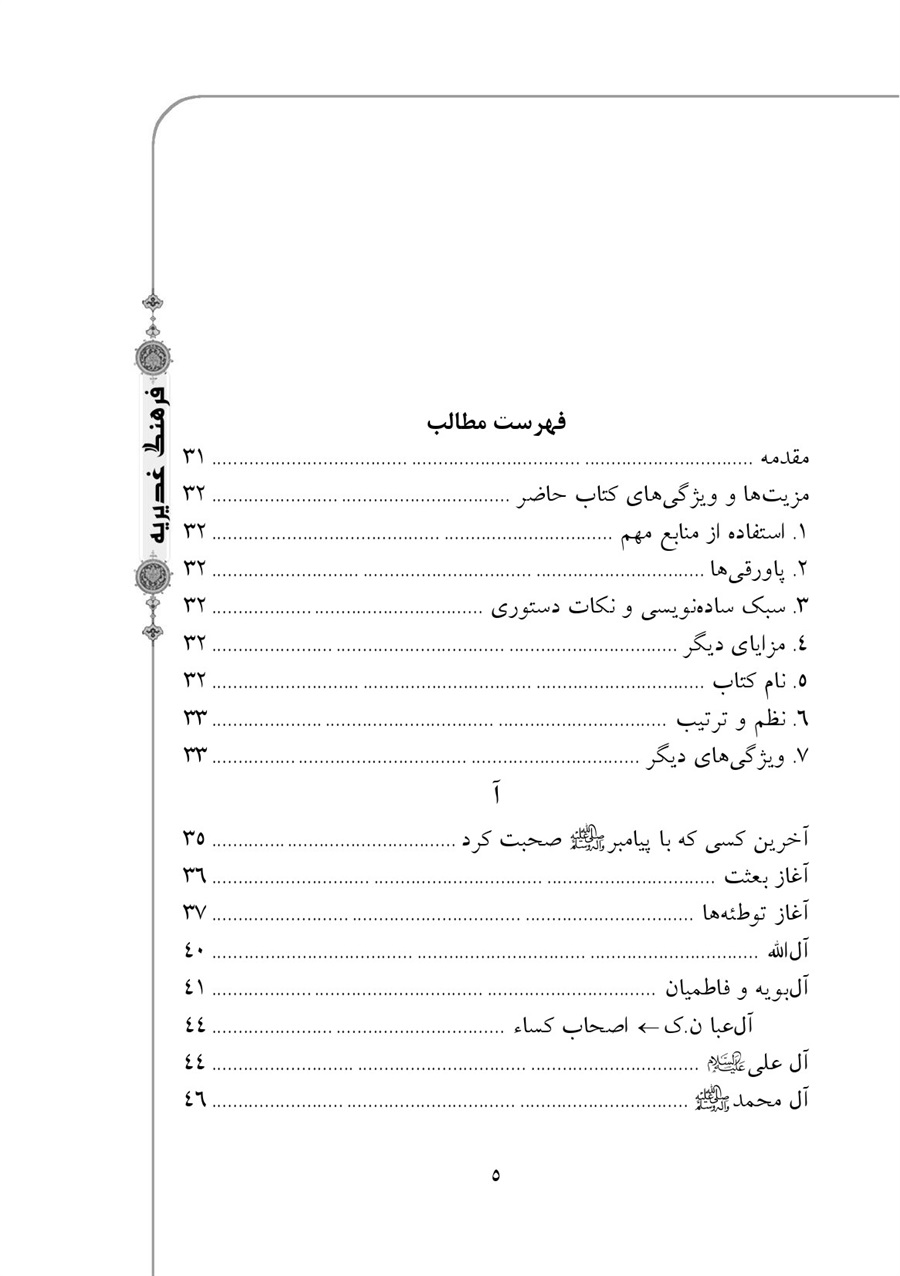 فرهنگ غدیریه
فهرست مطالب
مقدمه ................................ ۳۱
مزیت‌ها و ویژگی‌های کتاب حاضر ................................ ۳۲
۱. استفاده از منابع مهم ................................ ۳۲
۲. پاورقی‌ها ................................ ۳۲
۳. سبک ساده‌نویسی و نکات دستوری ................................ ۳۲
٤. مزایای دیگر ................................ ۳۲
٥. نام کتاب ................................ ۳۲
٦. نظم و ترتیب ................................ ۳۳
۷. ویژگی‌های دیگر ................................ ۳۳
آ
آخرین کسی که با پیامبر صلی‌الله‌علیه‌وآله‌وسلم صحبت کرد ................................ ۳٥
آغاز بعثت ................................ ۳٦
آغاز توطئه‌ها ................................ ۳۷
آل‌الله ................................ ٤۰
آل‌بویه و فاطمیان ................................ ٤۱
آل‌عبا ن.ک ← اصحاب کساء ................................ ٤٤
آل علی علیه‌السلام ................................ ٤٤
آل محمد صلی‌الله‌علیه‌وآله‌وسلم ................................ ٤٦
٥